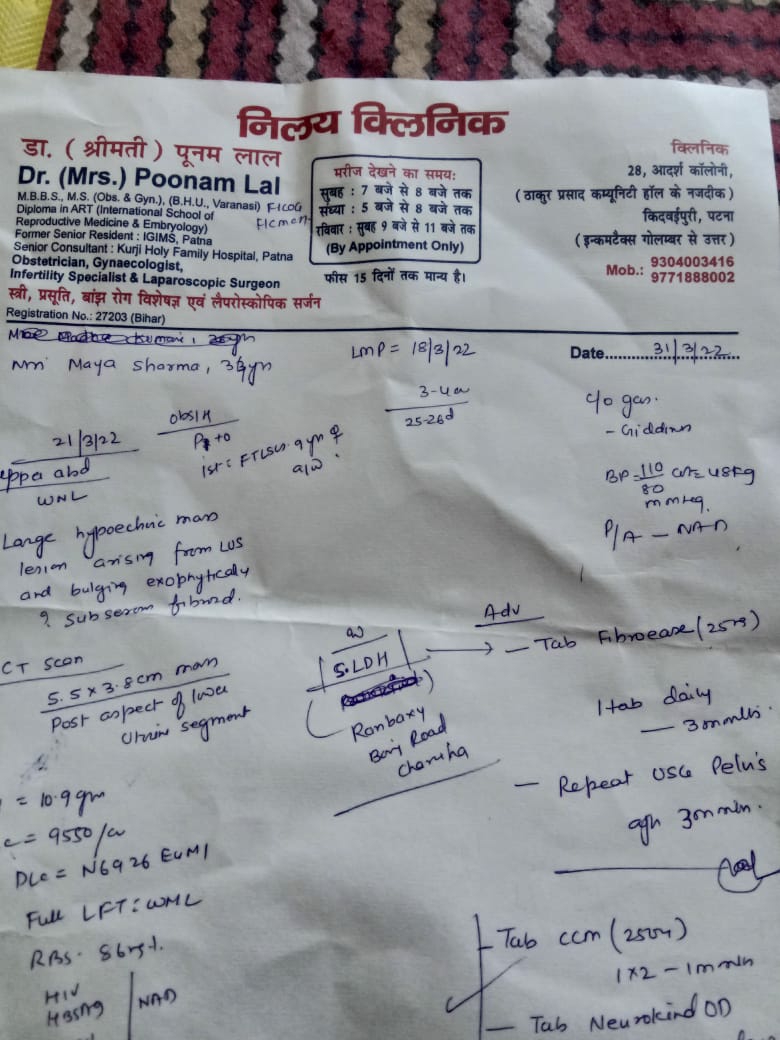 निलय क्लिनिक
डा. ( श्रीमती ) पूनम लाल
Dr. (Mrs.) Poonam Lal
M.B.B.S., M.S. (Obs. & Gyn.), (B.H.U., Varanasi) FICOG
Diploma in ART (International School of
Reproductive Medicine & Embryology)
Former Senior Resident : IGIMS, Patna
Senior Consultant : Kurji Holy Family Hospital, Patna
Obstetrician, Gynaecologist,
Infertility Specialist & Laparoscopic Surgeon
स्त्री, प्रसूति, बांझ रोग विशेषज्ञ एवं लैपरोस्कोपिक सर्जन
Registration No.: 27203 (Bihar)
मरीज देखने का समय:
सुबह : 7 बजे से 8 बजे तक
संध्या : 5 बजे से 8 बजे तक
रविवार : सुबह 9 बजे से 11 बजे तक
(By Appointment Only)
फीस 15 दिनों तक मान्य है।
क्लिनिक
28, आदर्श कॉलोनी,
( ठाकुर प्रसाद कम्यूनिटी हॉल के नजदीक )
किदवईपुरी, पटना
( इन्कमटैक्स गोलम्बर से उत्तर )
Mob.: 9304003416
9771888002
Maya Sharma,
LMP = 18/3/22
Date 31/3/22
21/3/22
Upper abd
WNL
Large hypoechoic mass
lesion arising from LUS
and bulging exophytically
? Subserous fibroid.
Obs/H
25-26d
c/o gas.
- Giddiness
BP = 110/80 wt = 48kg
mmHg
P/A - NAD
CT Scan
5.5 x 3.8 cm mass
Post aspect of lower
Uterine segment
S.LDH
Ranbaxy
Road
Adv
- Tab Fibroease (25mg)
1 tab daily
- 3 months.
- Repeat USG Pelvis
after 3 month.
= 10.9 gm
= 9550/cu
DLC = N69 26 E4 M1
Full LFT : WNL
RBS - 86
HIV
HBSAg
NAD
- Tab CCM (250)
1x2 - 1 month
- Tab Neurokind OD